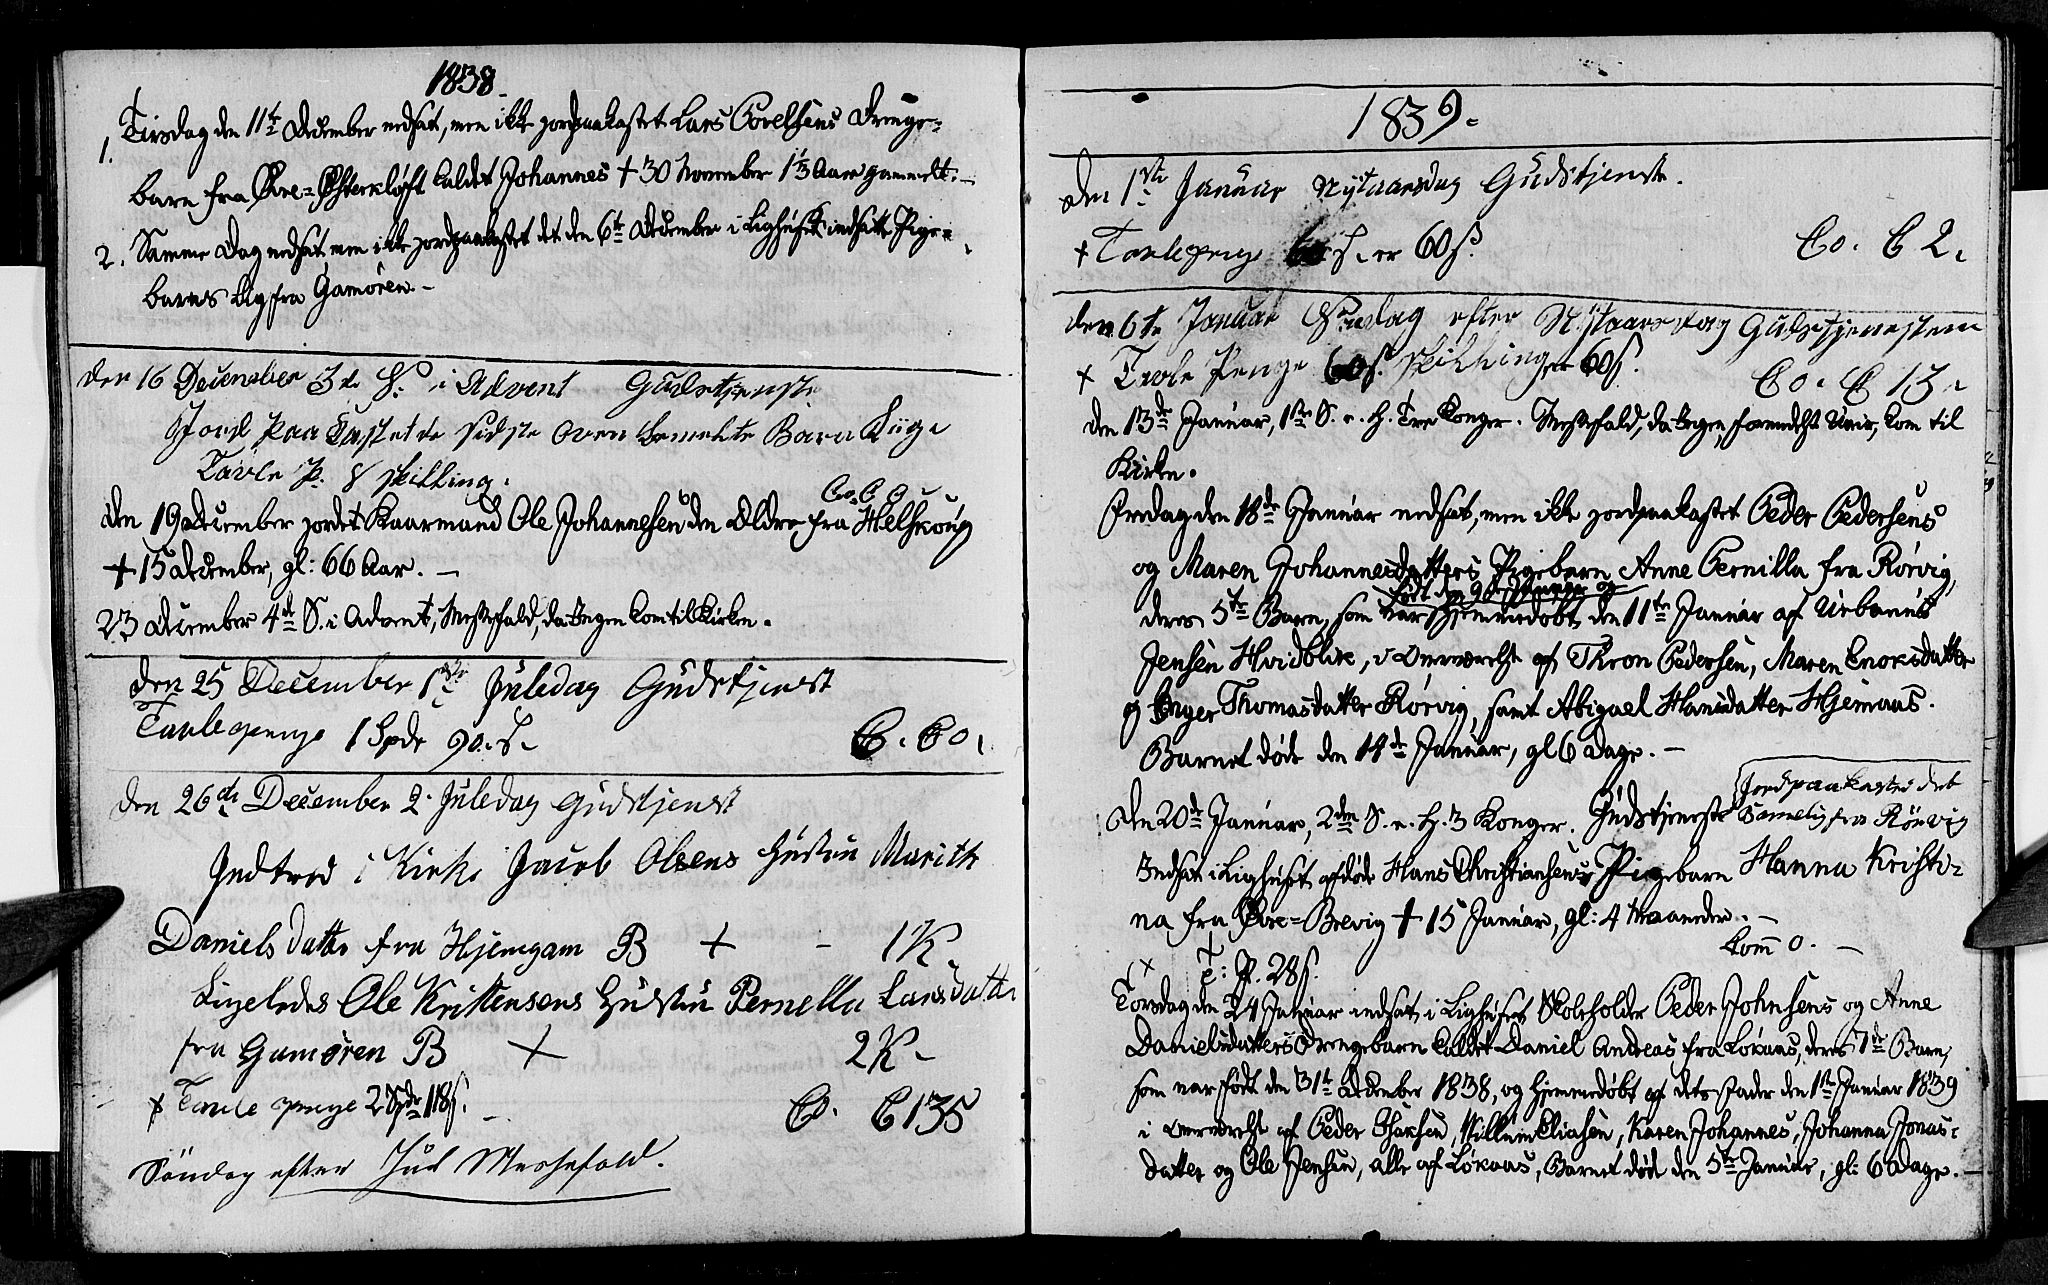 1838.
1. Tirsdag den 11te December nedsat, men ikke jordpaakastet Lars Povelsens Drenge-
barn fra Øvre-Østerkløft kaldet Johannes + 30 November 1 1/3 Aar gammelt. -
2. Samme Dag nedsat men ikke jordpaakastet det den 6te December i Liighuset indsatte Pige-
barns Lig fra Gamøren. -
den 16 December 3de S. i Advent Gudstjenste
Jord paa Kastet de sidste oven bemelte Barn Liige
Tavle P. 8 skilling.
Co. C 0
Den 19 December jordet Kaarmand Ole Johannesen den Ældre fra
+ 15 December, gl: 66 Aar. -
23 December 4de S. i Advent, Messefald, da Ingen kom til Kirken.
den 25 December 1ste Juledag Gudstjenst
Tavlepenge 1 Spdr 90. s. C. Co.
den 26de December 2. Juledag Gudstjenst
Indtred i Kirke Jacob Olsens Hustru Marith
Daniels datter fra Hjemgam B + - 1 K.
Ligeledes Ole Kristensens Hustru Pernella Larsdatter
fra Gamøren B + 2 K -
+ Tavle penge 2 Spdr 118 s. - Co. C 135
Søndag efter Juul Messefald.
1839.
den 1ste Januar Nytaarsdag Gudstjenste.
+ Tavlepenge 60 s. er 60 s. Co. C 2.
den 6te Januar Søndag efter Nytaarsdag Gudstjenesten
+ Tavle Penge 60 s. skilling er 60 s. Co. C 13.
Den 13de Januar, 1ste S. e. H. Tre Konger. Messefald, da Ingen, formedelst Uveir, kom til
Kirke.
Fredag den 18de Januar nedsat, men ikke jordpaakastet Peder Pedersens
og Maren Johannesdatters Pigebarn Anne Pernilla fra Rørvig,
født den 9de Januar og
deres 5te Barn, som var hjemmedøbt den 11te Januar af Urbanus
Jensen Hvidblik, i Overværelse af Thron Pedersen, Maren Enoksdatter
og Inger Thomasdatter Rørvig, samt Abigael Hansdatter Hjemaas.
Barnet døde den 14de Januar, gl 6 Dage. -
Jordpaakastet det
Den 20de Januar, 2den S. e. H. 3 Konger. Gudstjeneste Barnelig fra Rørvig
Indsat i Liighuset afdøde Hans Christiansens Pigebarn Hanna Kristi-
na fra Øvre-Brevig + 15 Januar, gl: 4 Maaneder. -
Com 0. -
+ T: P. 28 s.
Torsdag den 24 Januar indsat i Liighuset Skoleholder Peder Johnsens og Anne
Danielsdatters Drengebarn kaldet Daniel Andreas fra Løkaas, deres 7de Barn,
som var født den 31te December 1838, og hjemmedøbt af dets Fader den 1ste Januar 1839
i Overværelse af Peder Isaksen, Willum Eliasen, Karen Johannes, Johanna Jonas-
datter og Ole Jensen, alle af Løkaas, Barnet død den 5te Januar, gl: 6 Dage. -